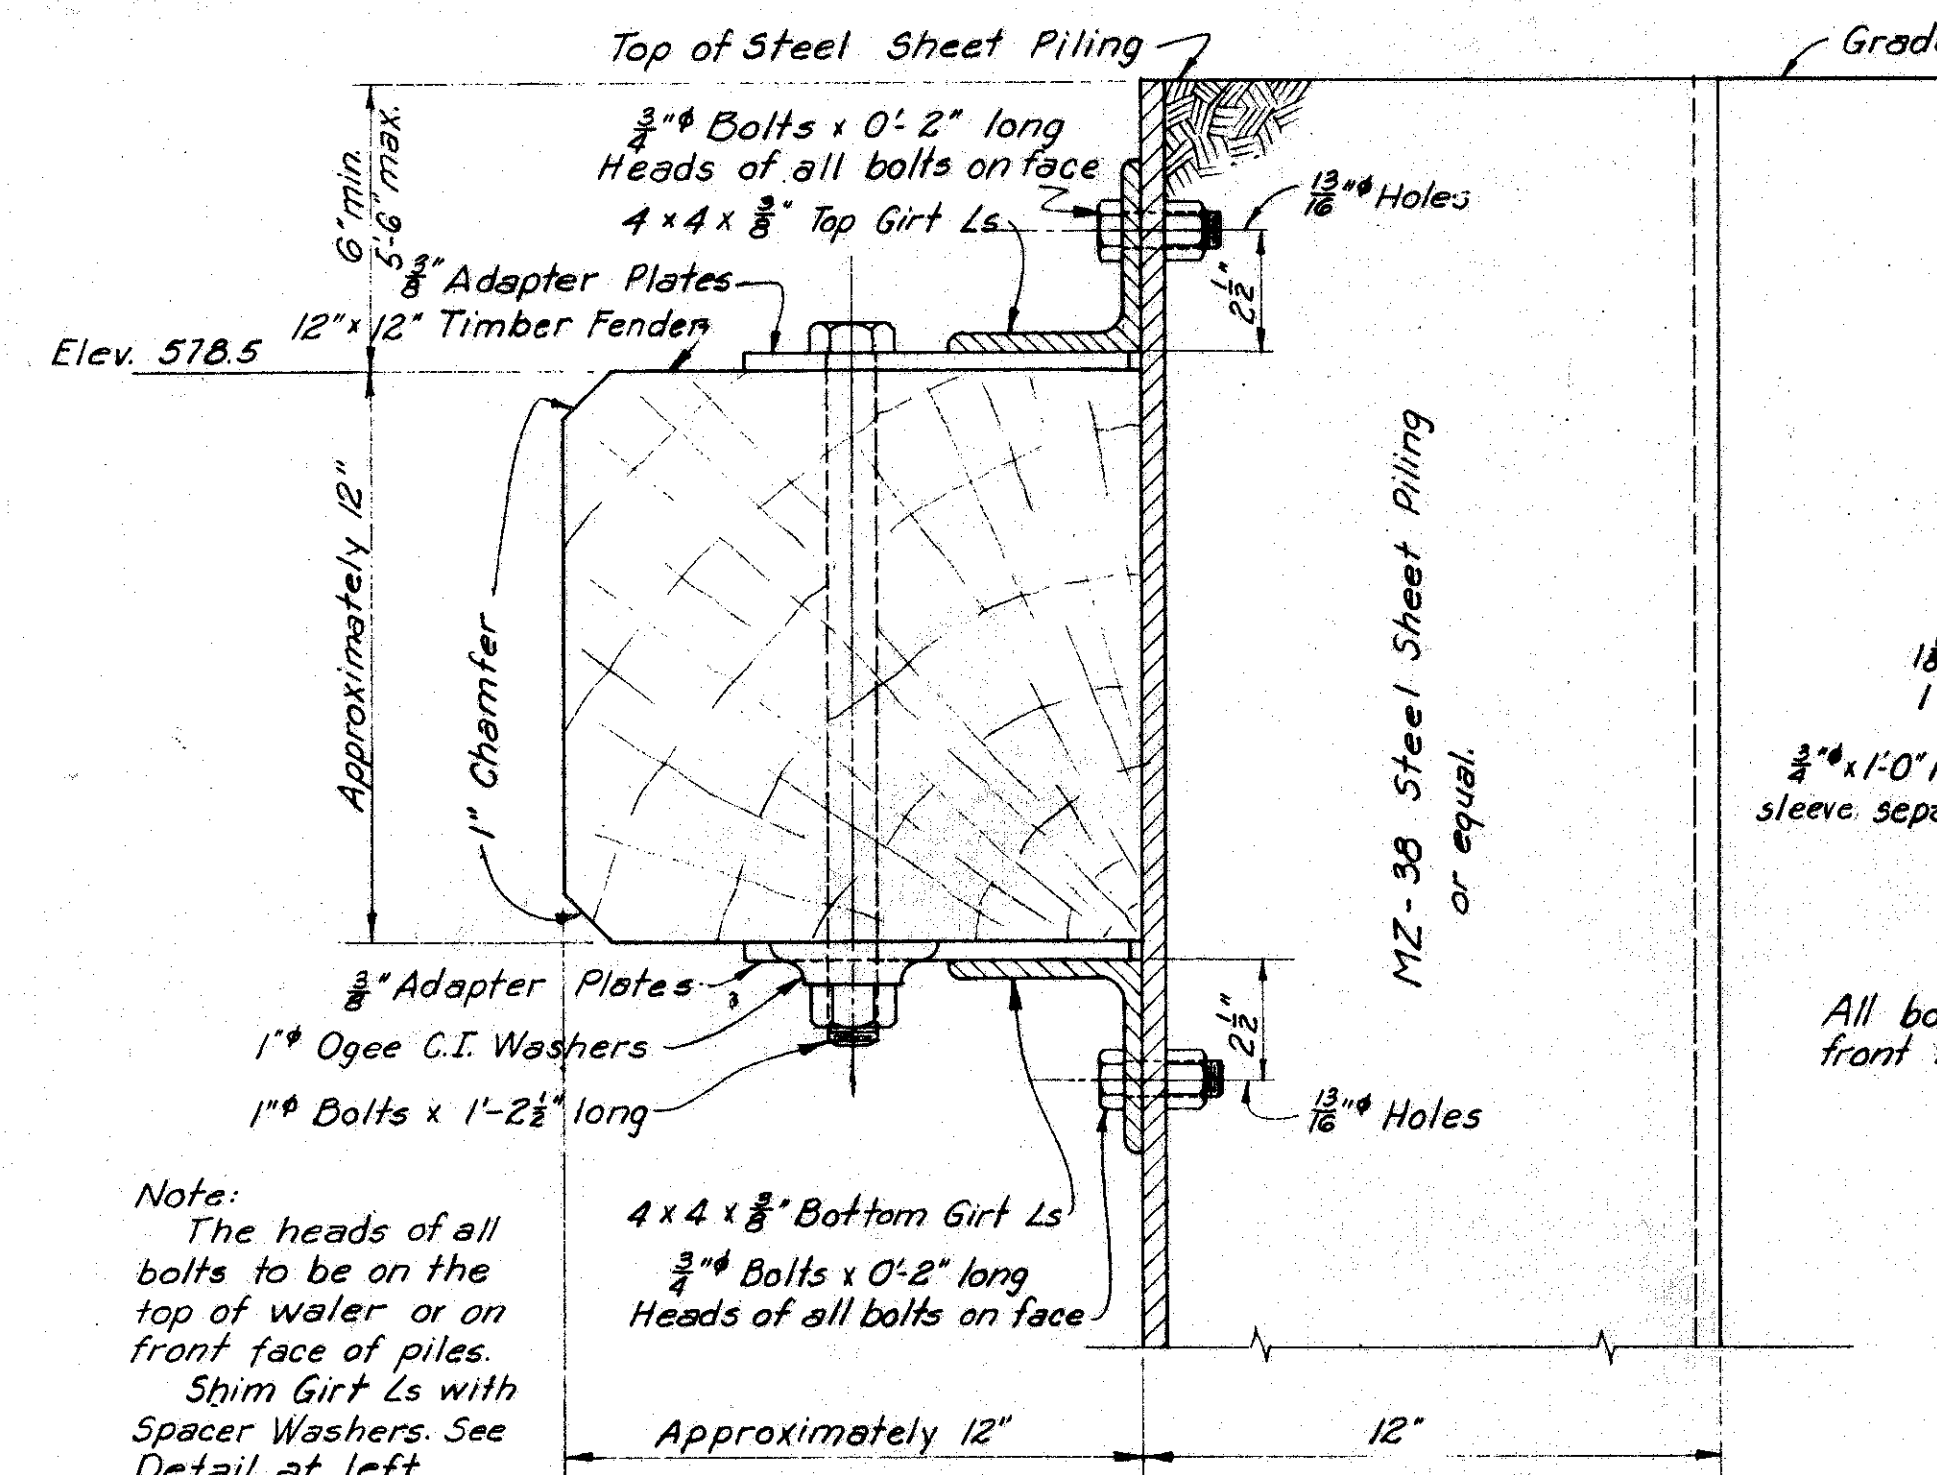 Top of Steel Sheet Piling
Grade
3/4"φ Bolts x 0'-2" long
Heads of all bolts on face
4 x 4 x 3/8" Top Girt Ls
13/16"φ Holes
6" min.
5'-6" max.
2 1/2"
3/8" Adapter Plates
12" x 12" Timber Fender
Elev. 578.5
Approximately 12"
1" Chamfer
MZ-38 Steel Sheet Piling
or equal.
3/4"φ x 1'-0"
sleeve
3/8" Adapter Plates
1"φ Ogee C.I. Washers
1"φ Bolts x 1'-2 1/2" long
2 1/2"
13/16"φ Holes
All
front
Note:
The heads of all
bolts to be on the
top of waler or on
front face of piles.
Shim Girt Ls with
Spacer Washers. See
Detail at left
4 x 4 x 3/8" Bottom Girt Ls
3/4"φ Bolts x 0'-2" long
Heads of all bolts on face
Approximately 12"
12"